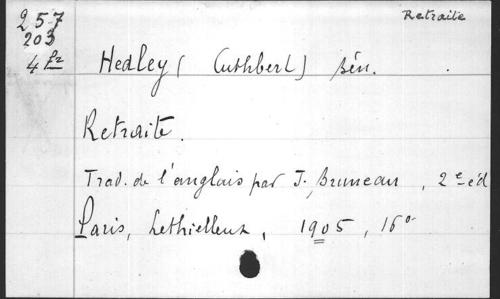 257
Retraite
203
4 fr
Hedley (Cuthbert) sén.
Retraite.
Trad. de l'anglais par J. Bruneau, 2e éd
Paris, Lethielleux, 1905, 16°